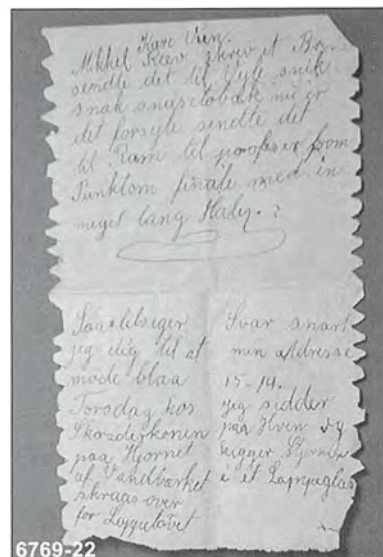 Kære Ven.
Mikkel Reev skrev et Br.
sendte det til Vyle snik
snak snusetobak nu er
det forsyle sendte det
til Ram til profoser from
Punktom finale med en
meget lang Haley. ?
Saa tilsiger
jeg dig til at
møde blaa
Torsdag hos
paa Hjornet
af Vandværket
skraas over
for Loppetovet
Svar snart
min Addresse
15-14.
Jeg sidder
paa Hven og
kigger Stjerner
i et Lampeglas
6769-22